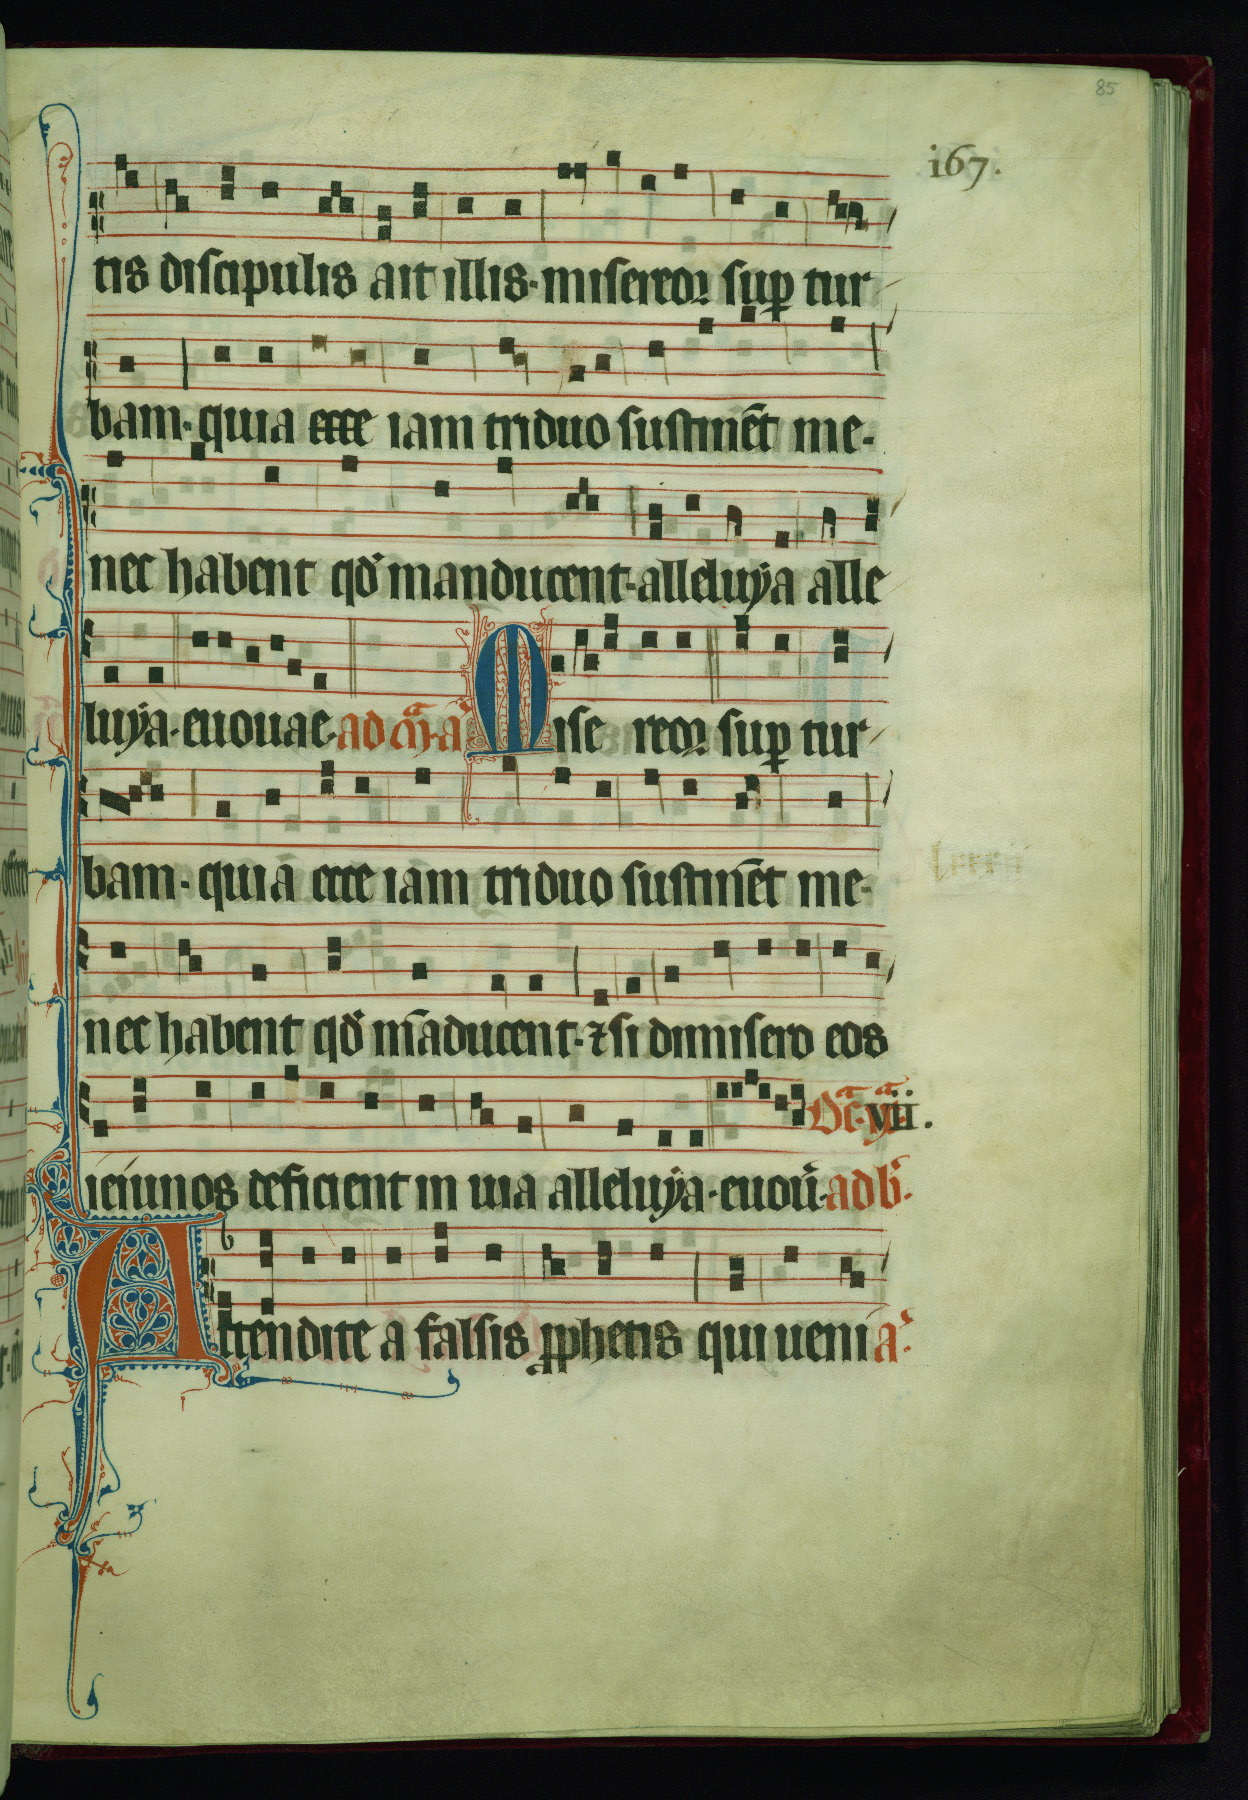 85
i67.
tis discipulis ait illis. misereor sup̲ tur
bam. quia ecce iam triduo sustinēt me.
nec habent qđ manducent. alleluÿa alle
luÿa. euouae. ad m̃. a᷈ Mise reor sup̲ tur
bam. quia ecce iam triduo sustinēt me.
nec habent qđ m̄aducent. ⁊ si dimisero eos
Dc̄a. vii.
ieiunos deficient in uia alleluÿa. euou᷈. ad b᷈.
Attendite a falsis ꝓphetis qui ueni a᷈.